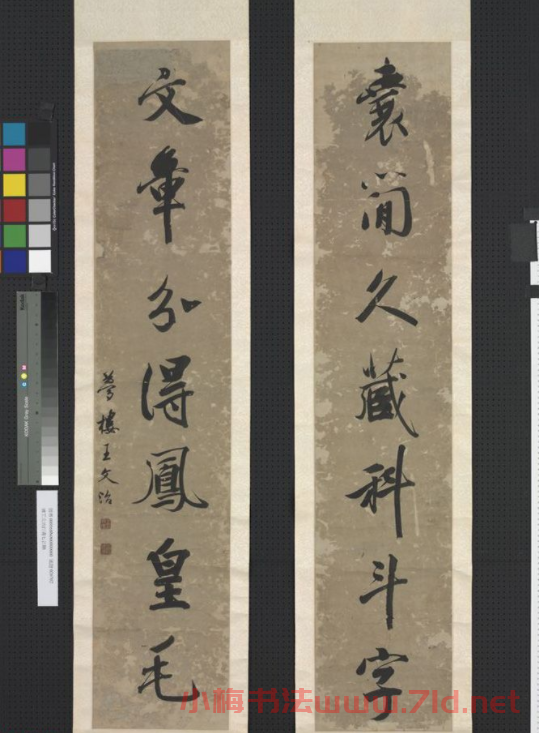 囊简久藏科斗字
文章分得鳳皇毛
夢樓王文治
小梅书法www.7ld.net